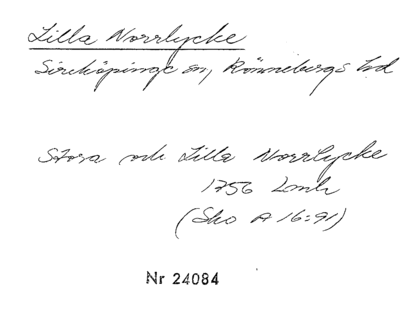 Lilla Norrlycke
Sireköpinge sn, Rönnebergs hd
Stora och Lilla Norrlycke
1756 Lmh
(Sko A 16:91)
Nr 24084